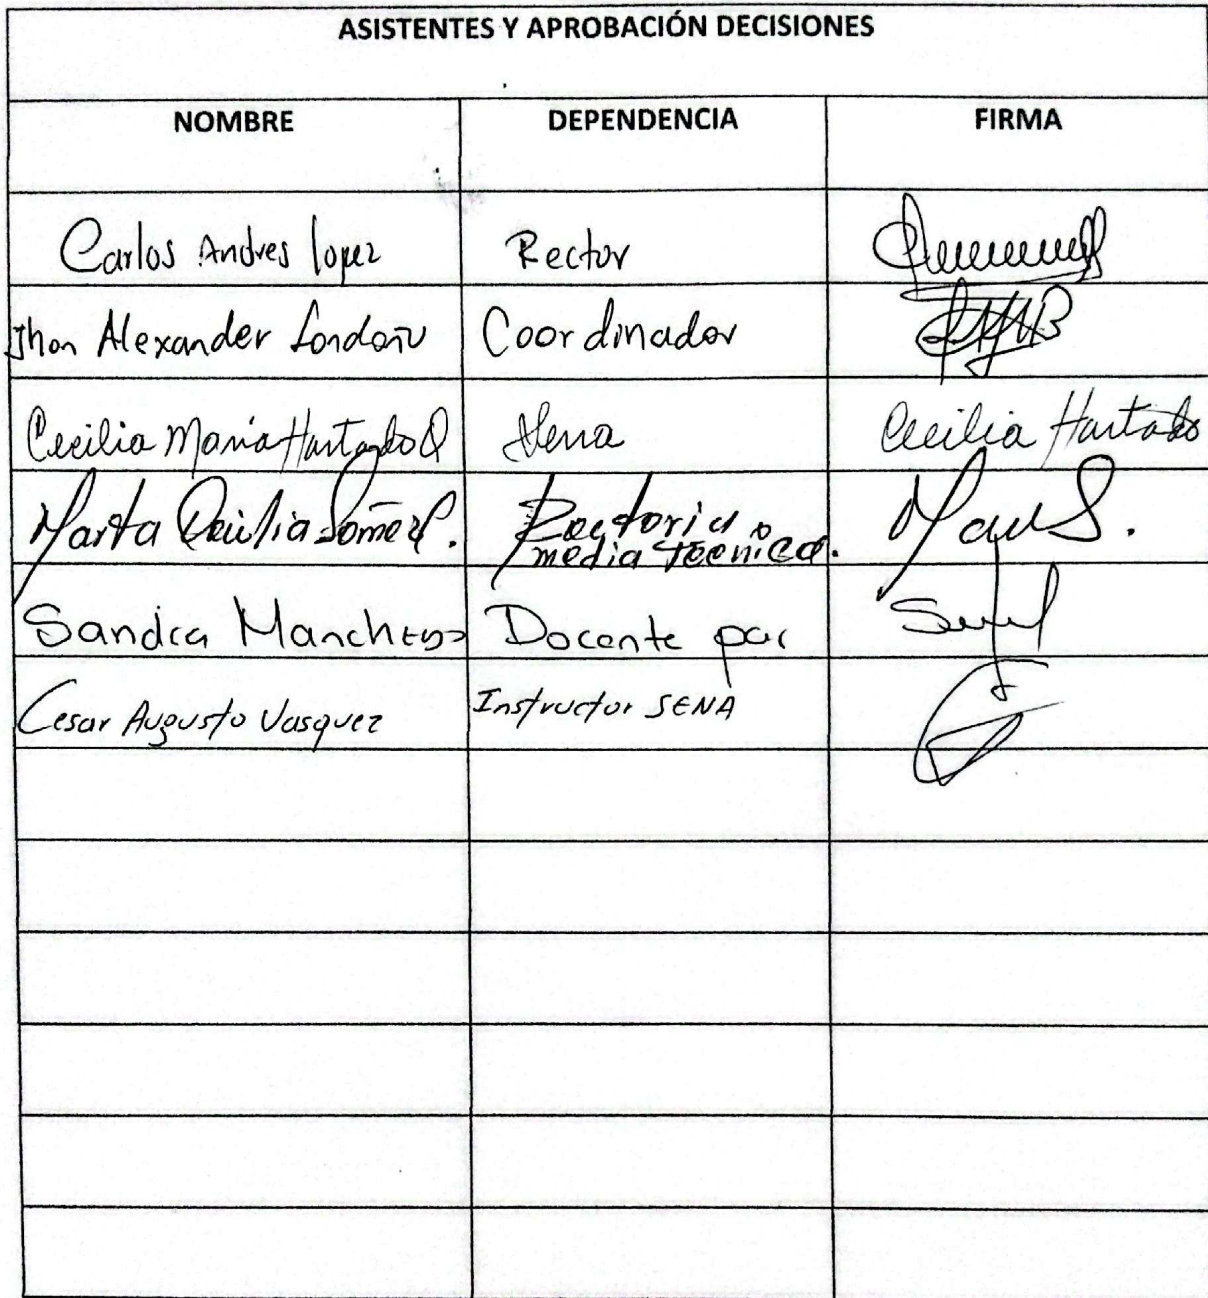 ASISTENTES Y APROBACIÓN DECISIONES
NOMBRE DEPENDENCIA FIRMA
Carlos Andres lopez Rector
Jhon Alexander Londoño Coordinador
Cecilia María Hurtado Q Sena Cecilia Hurtado
Marta Cecilia Gómez Rectoría
media técnica.
Sandra Docente par
Cesar Augusto Vasquez Instructor SENA